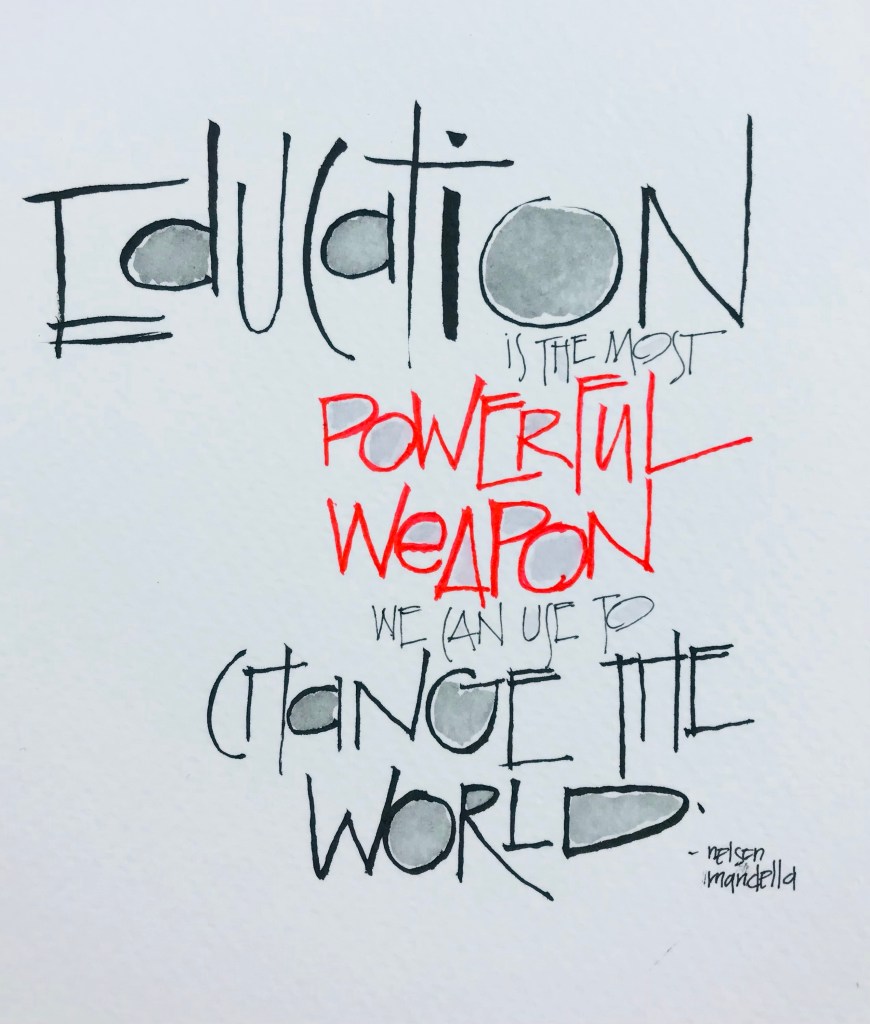 EdUCatiON
iS THE MOST
POWERFUL
WeAPON
WE CAN USE TO
CHaNGE THE
WORLD.
- nelsen
mandella